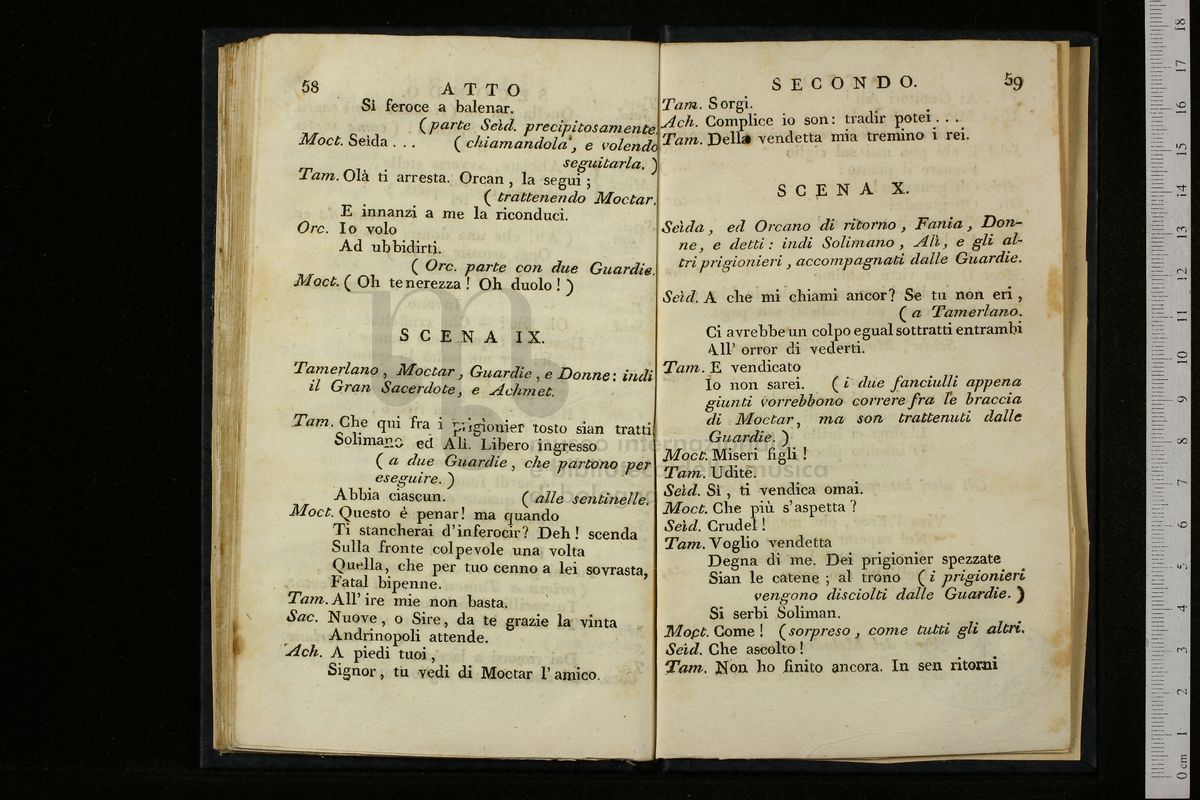 58
ATTO
Si feroce a balenar.
(parte Seìd. precipitosamente.
Moct. Seìda . . . (chiamandola, e volendo
seguitarla.)
Tam. Olà ti arresta. Orcan, la segui;
(trattenendo Moctar.
E innanzi a me la riconduci.
Orc. Io volo
Ad ubbidirti.
(Orc. parte con due Guardie.
Moct. (Oh tenerezza! Oh duolo!)
SCENA IX.
Tamerlano, Moctar, Guardie, e Donne: indi
il Gran Sacerdote, e Achmet.
Tam. Che qui fra i prigionier tosto sian tratti
Solimano ed Alì. Libero ingresso
(a due Guardie, che partono per
eseguire.)
Abbia ciascun. (alle sentinelle.
Moct. Questo è penar! ma quando
Ti stancherai d'inferocir? Deh! scenda
Sulla fronte colpevole una volta
Quella, che per tuo cenno a lei sovrasta,
Fatal bipenne.
Tam. All' ire mie non basta.
Sac. Nuove, o Sire, da te grazie la vinta
Andrinopoli attende.
Ach. A piedi tuoi,
Signor, tu vedi di Moctar l'amico.
SECONDO.
59
Tam. Sorgi.
Ach. Complice io son: tradir potei . . .
Tam. Della vendetta mia tremino i rei.
SCENA X.
Seìda, ed Orcano di ritorno, Fania, Don-
ne, e detti: indi Solimano, Alì, e gli al-
tri prigionieri, accompagnati dalle Guardie.
Seìd. A che mi chiami ancor? Se tu non eri,
(a Tamerlano.
Ci avrebbe un colpo egual sottratti entrambi
All' orror di vederti.
Tam. E vendicato
Io non sarei. (i due fanciulli appena
giunti vorrebbono correre fra le braccia
di Moctar, ma son trattenuti dalle
Guardie.)
Moct. Miseri figli!
Tam. Udite.
Seìd. Sì, ti vendica omai.
Moct. Che più s'aspetta?
Seìd. Crudel!
Tam. Voglio vendetta
Degna di me. Dei prigionier spezzate
Sian le catene; al trono (i prigionieri
vengono disciolti dalle Guardie.)
Si serbi Soliman.
Moct. Come! (sorpreso, come tutti gli altri.
Seìd. Che ascolto!
Tam. Non ho finito ancora. In sen ritorni
museo internazionale
e biblioteca della musica
di bologna
0 cm 1 2 3 4 5 6 7 8 9 10 11 12 13 14 15 16 17 18